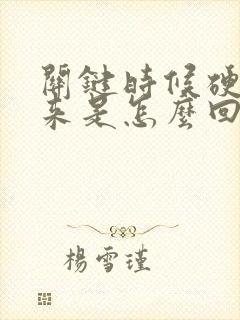 關鍵時候硬
來是怎麼回
楊雪瑾